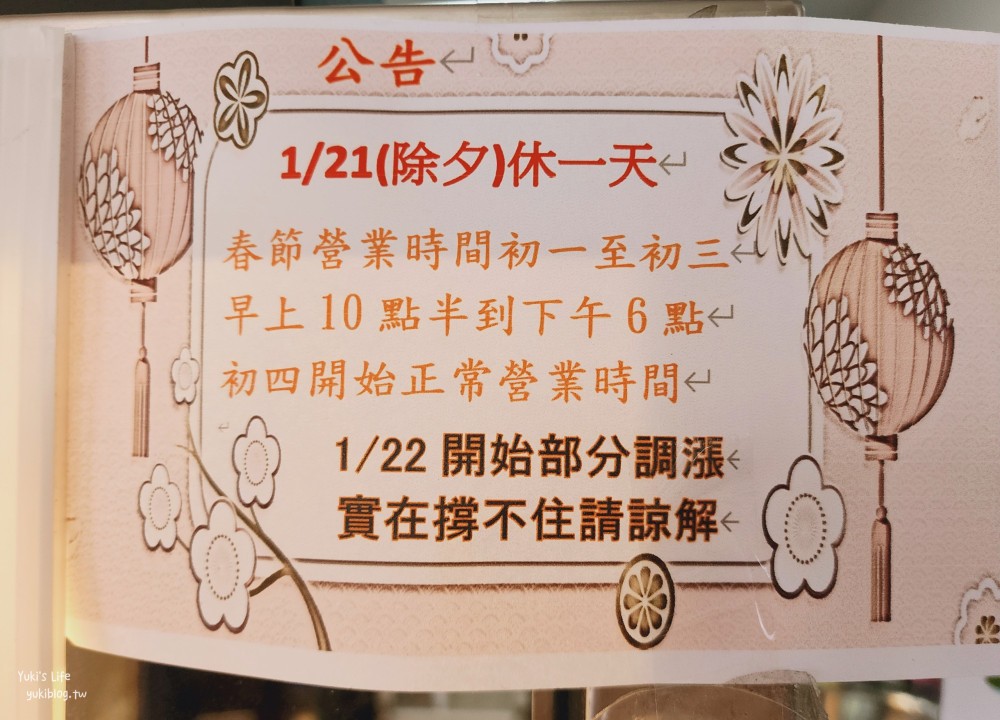 公告
1/21(除夕)休一天
春節營業時間初一至初三
早上 10 點半到下午 6 點
初四開始正常營業時間
1/22 開始部分調漲
實在撐不住請諒解
Yuki's Life
yukiblog.tw